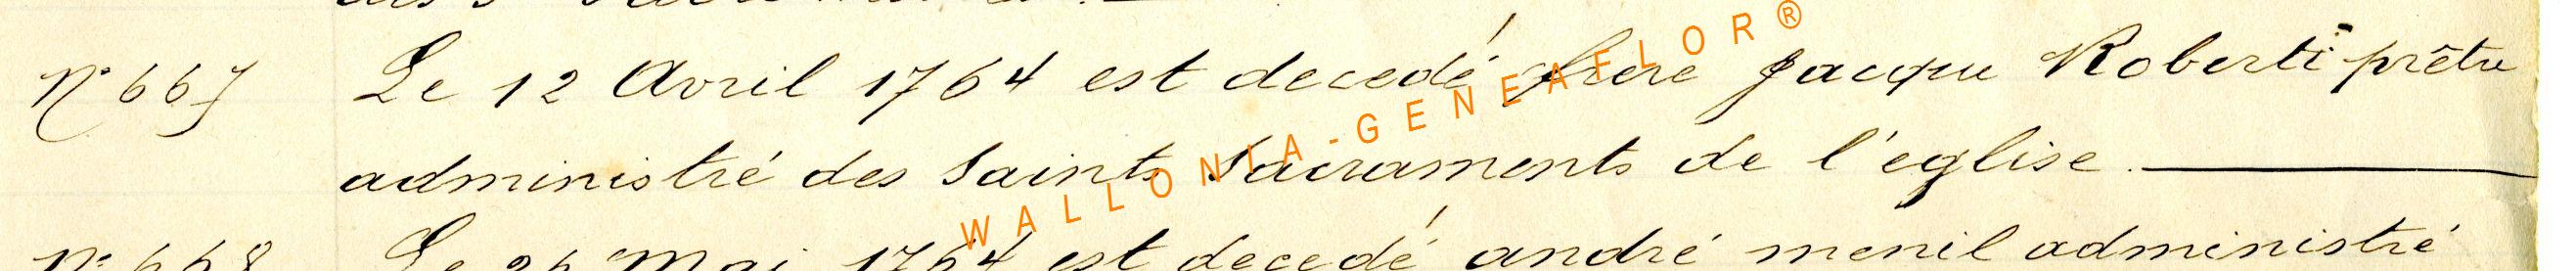 N° 667 Le 12 Avril 1764 est decedé frere Jacque Roberti prêtre
administré des Saints Sacraments de l'eglise.
N° 668 Le 26 Mai 1764 est decedé andré menil administré
WALLONIA-GENEAFLOR®